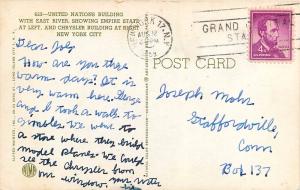 613—UNITED NATIONS BUILDING
WITH EAST RIVER, SHOWING EMPIRE STATE
AT LEFT, AND CHRYSLER BUILDING AT RIGHT
NEW YORK CITY
GRAND
POST CARD
4¢
Dear Joly
How are you these
warm days. It is
very warm here.
and I took a walk to
Gimbles. We went to
a store where they build
model planes. We could
see the Chrysler from
our window.
Joseph Mohr
Staffordville,
Conn
Box 137